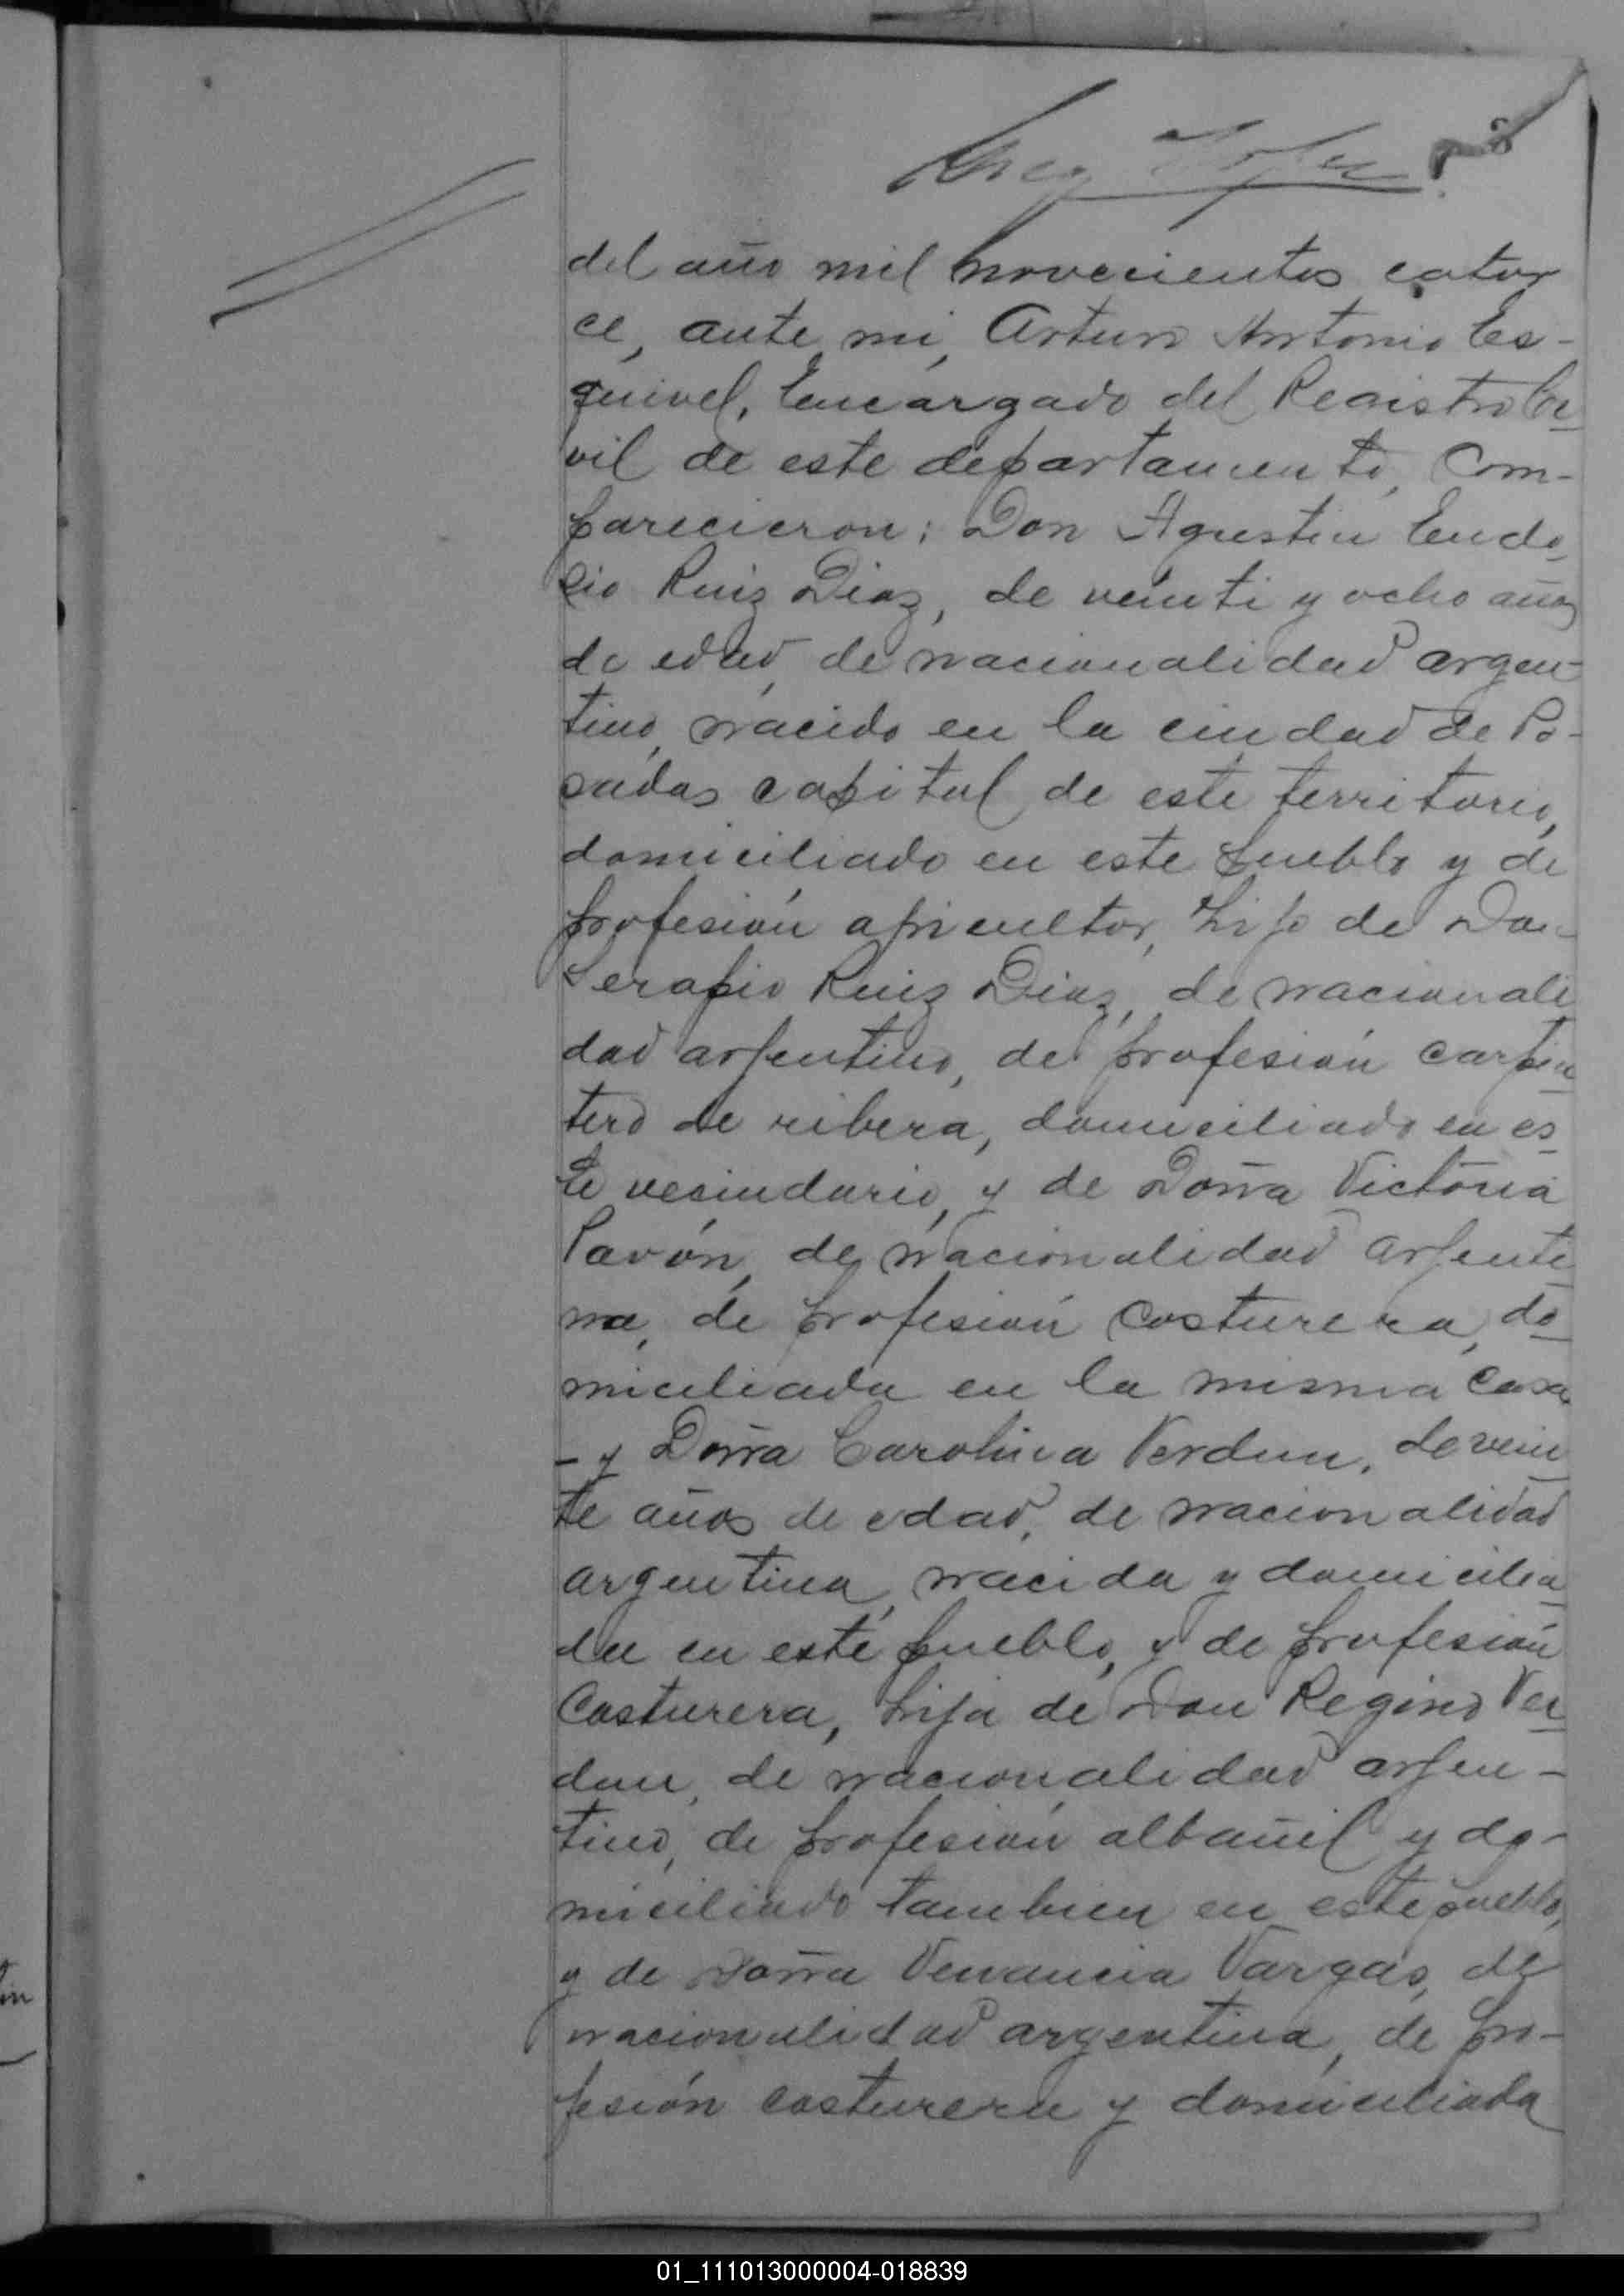 del año mil novecientos cator
ce, ante mi, Arturo Antonio Es-
quivel, Encargado del Registro Ci
vil de este departamento, Com-
parecieron: Don Agustin Eudo
cio Ruiz Diaz, de veinti y ocho años
de edad, de nacionalidad argen-
tino, nacido en la ciudad de Po-
sadas capital de este territorio,
domiciliado en este pueblo y de
profesión agricultor, hijo de Don
Serapio Ruiz Diaz, de nacionali
dad argentino, de profesión carpin
tero de ribera, domiciliado en es
te vesindario, y de Doña Victoria
Pavón, de nacionalidad argenti
na, de profesión costurera, do
miciliada en la misma casa
- y Doña Carolina Verdun, de vein
te años de edad, de nacionalidad
argentina, nacida y domicilia
da en este pueblo, y de profesión
Costurera, hija de Don Regino Ver
dun, de nacionalidad argen-
tino, de profesión albañil y do-
miciliado tambien en este pueblo,
y de Doña Venancia Vargas, de
nacionalidad argentina, de pro-
fesión costurera y domiciliada
01_111013000004-018839